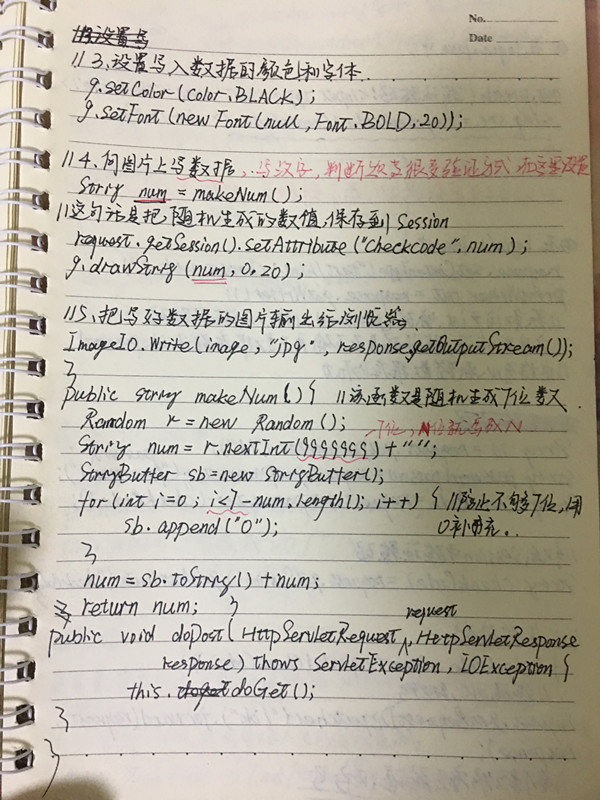 No.
Date
//3、设置写入数据的颜色和字体.
g.setColor(color.BLACK);
g.setFont(new Font(null, Font.BOLD,20));
//4、向图片上写数据, 写汉字, 判断 很多验证方式 在这里设置
String num = makeNum();
//这句话是把随机生成的数值,保存到Session
request.getSession().setAttribute("Checkcode", num);
g.drawString(num,0,20);
//5、把写好数据的图片输出给浏览器.
ImageIO.write(image, "jpg", response.getOutputStream());
}
public string makeNum(){ //该函数是随机生成7位数
Random r = new Random(); 7位, N位就写成N
String num = r.nextInt(9999999)+"";
StringButter sb = new StringButter();
for(int i=0; i<7-num.length(); i++) { //防止不够7位,用
sb.append("0"); 0来填充.
}
num = sb.toString()+num;
return num; }
request
public void doPost(HttpServletRequest , HttpServletResponse
response) thows ServletException, IOException {
this. doGet();
}
}